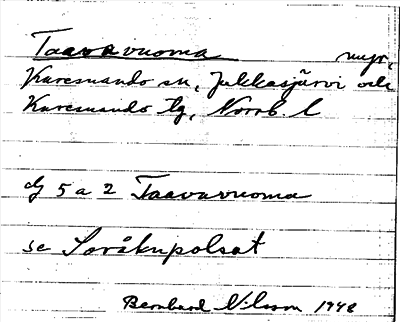 Taavavuoma myr,
Karesuando sn, Jukkasjärvi och
Karesuando tg, Norrb. l
dj 5 a 2 Taavavuoma
se Soråkupolsat
Bernhard Nilsson 1948